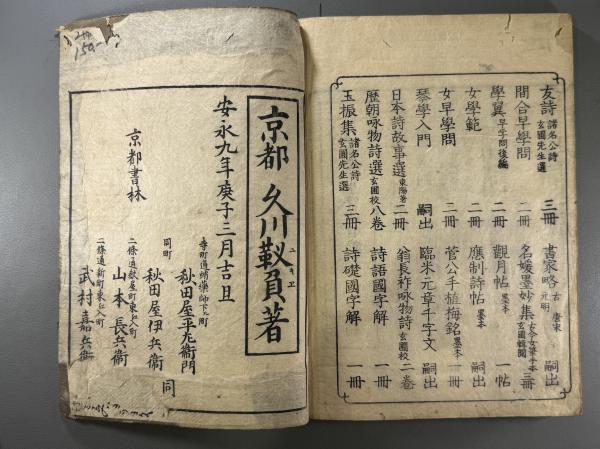 友詩 諸名公詩 玄圃先生選 三冊
間合早學問 二冊
學翼 早学問後編 二冊
女學範 二冊
女早學問 二冊
琴學入門 嗣出
日本詩故事選 東陽著 二冊
歴朝咏物詩選 玄圃校 八卷
玉振集 諸名公詩 玄圃先生選 三冊
書家略 古 唐宋 元明 嗣出
名媛墨妙集 玄圃輯閲 三冊
觀月帖 墨本 一帖
應制詩帖 墨本 嗣出
菅公手植梅銘 墨本 一冊
臨米元章千字文 嗣出
翁長祚咏物詩 玄圃校 二卷
詩語國字解 一冊
詩礎國字解 一冊
150-
京都 久川靫負著
ユキエ
安永九年庚子三月吉旦
京都書林
寺町通蛸薬師下ル町
秋田屋平左衛門
同町
秋田屋伊兵衛 同
二條通敷屋町東江入町
山本長兵衛
二條通新町東江入町
武村嘉兵衛